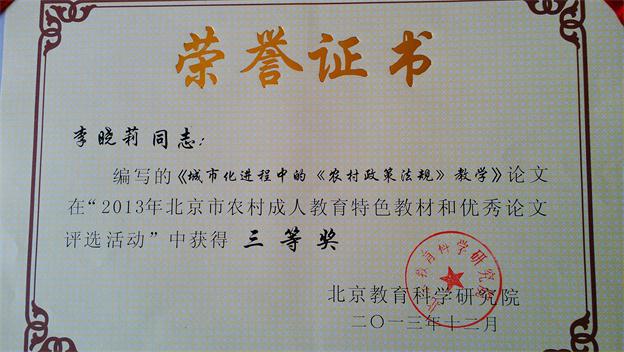 荣誉证书
李晓莉同志:
编写的《城市化进程中的《农村政策法规》教学》论文
在“2013年北京市农村成人教育特色教材和优秀论文
评选活动”中获得 三等奖
北京教育科学研究院
北京教育科学研究院
二〇一三年十二月